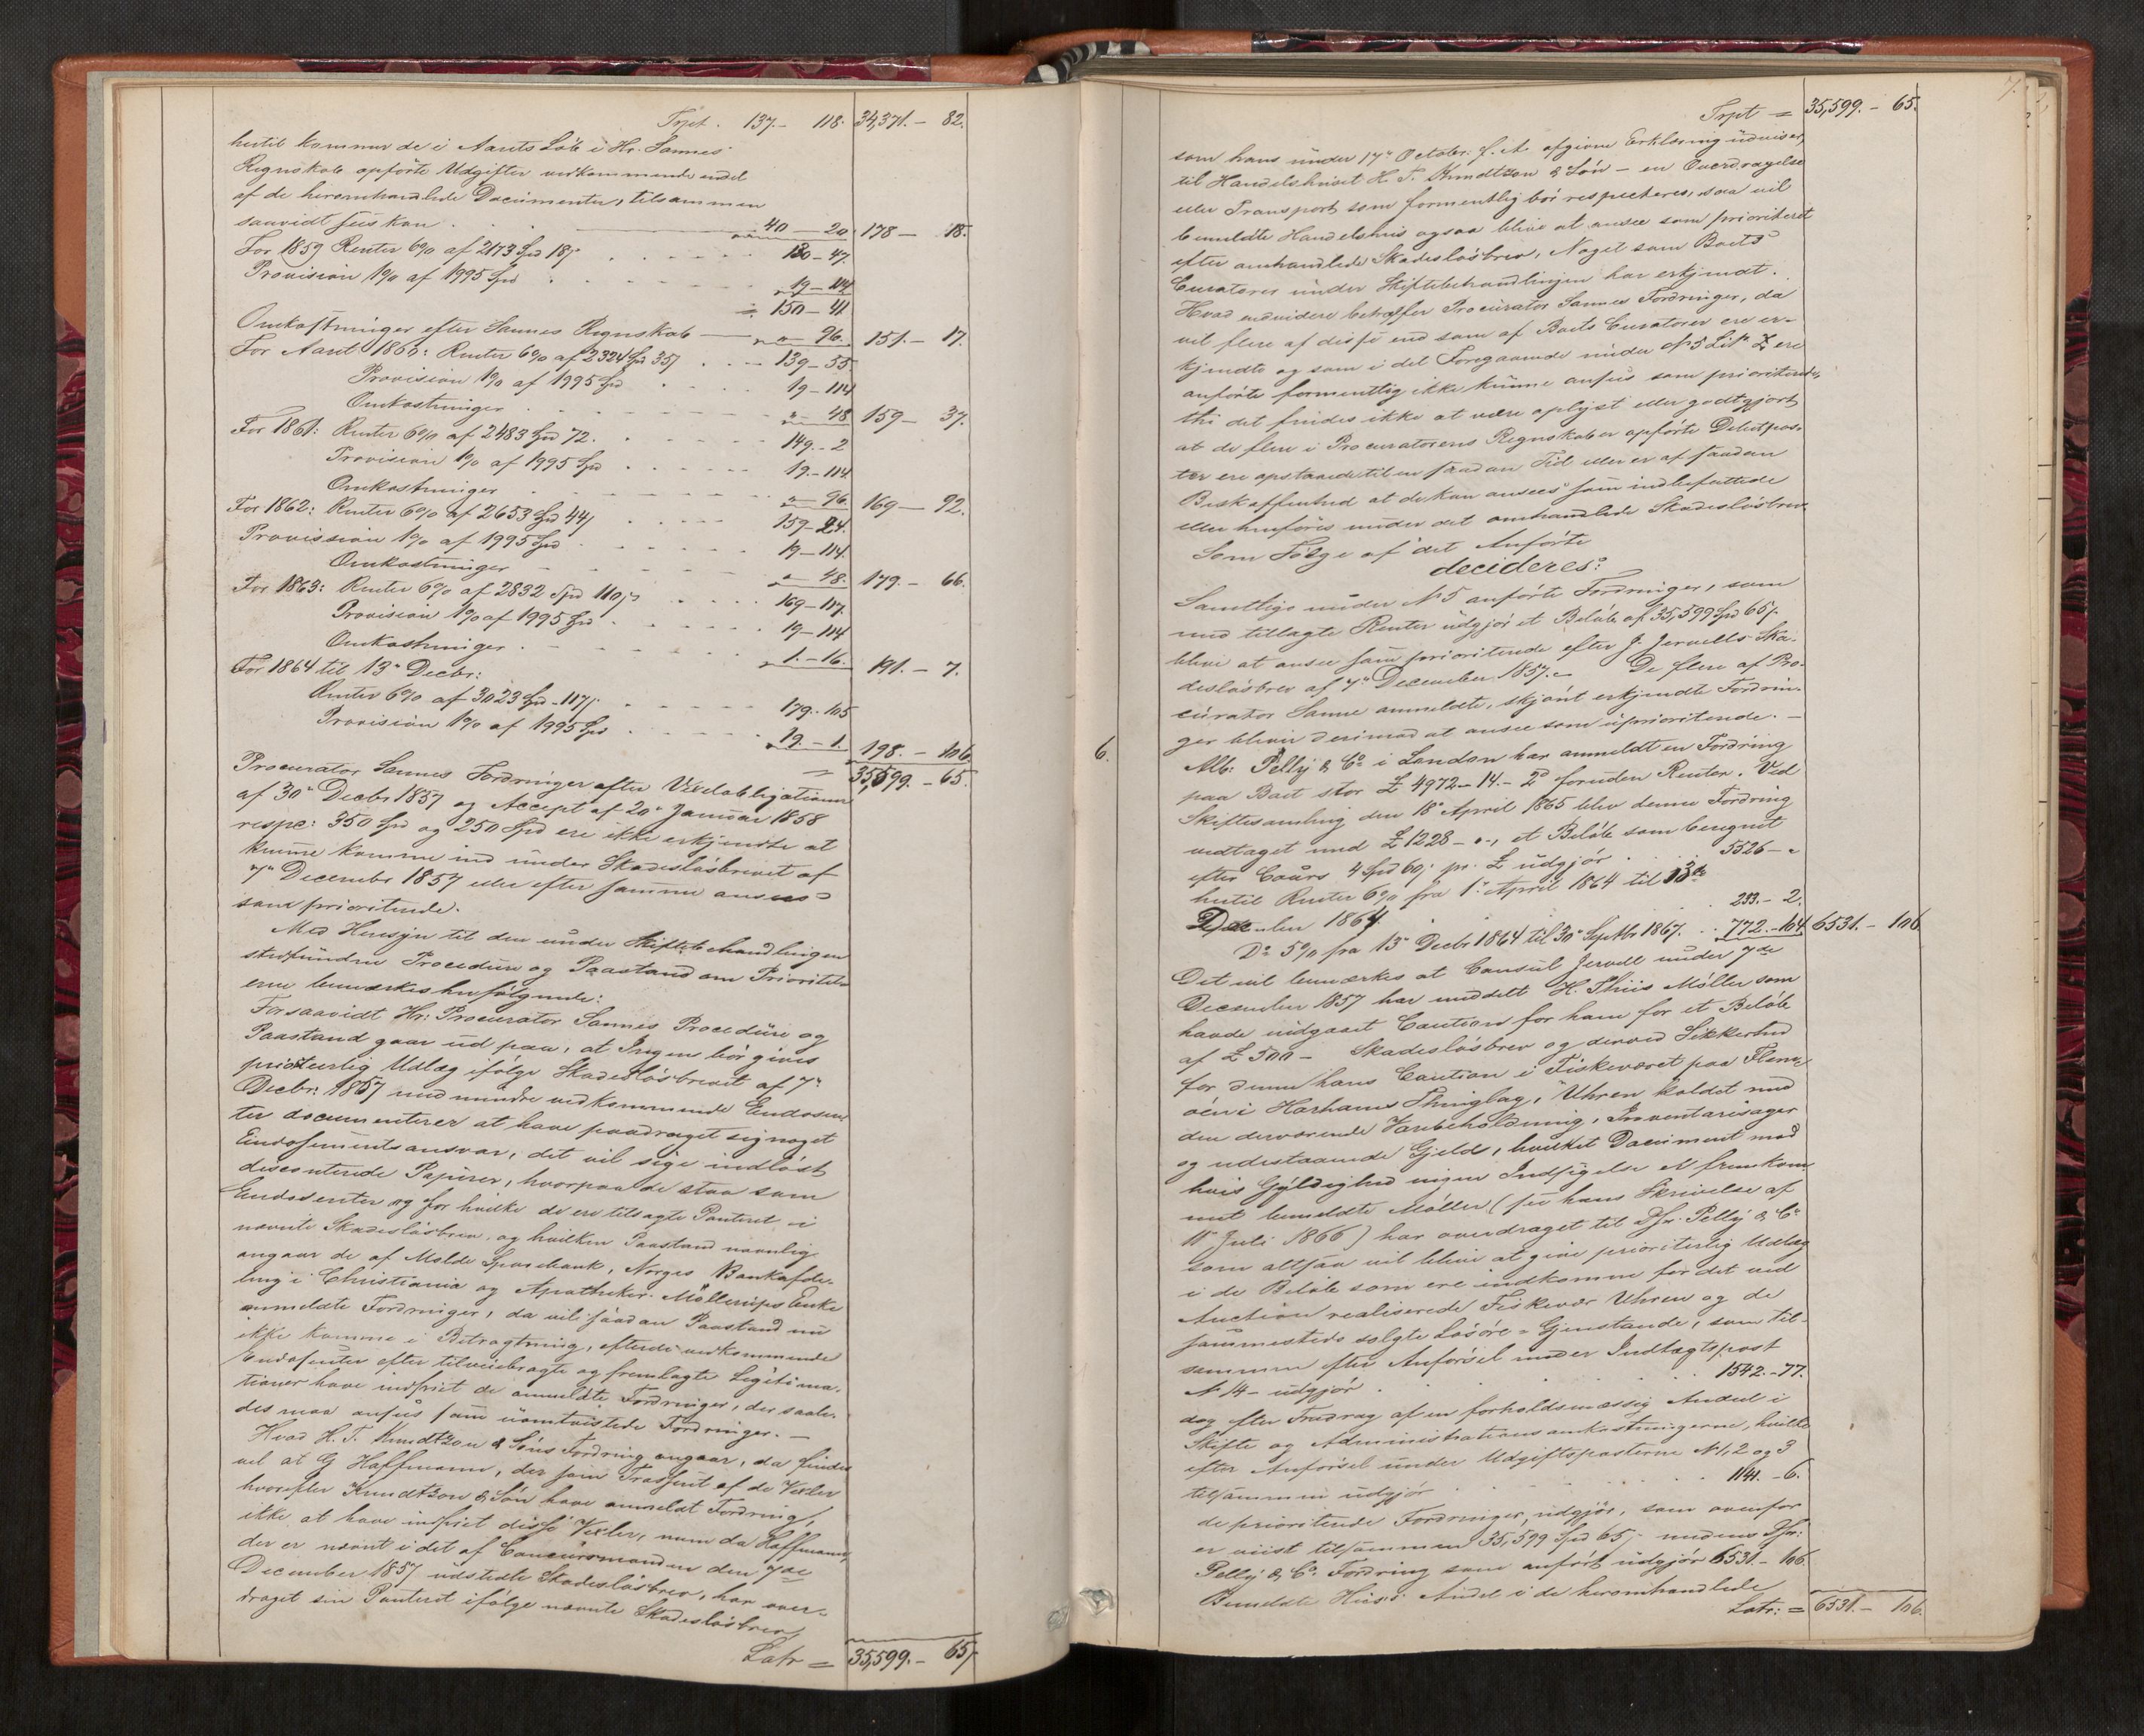 Trpt. 137.- 118. 34,371.- 82.
hertil kommer de i Aarets Löb i Hr. Sannes
Regnskab opförte Udgifter vedkommende endel
af de heromhandlede Documenter, tilsammen
saavidt sees kan . . . 40 - 20. 178 - 18.
For 1859 Renter 6% af 2173 Spd 18ß . . . . . 130 - 47.
Provision 1% af 1995 Spd . . . . . 19 - 114
= 150 - 41
Omkostninger efter Sannes Regnskab " - 96. 151. - 17.
For Aaret 1860: Renter 6% af 2324 Spd 35ß . . . 139 - 55
Provision 1% af 1995 Spd . . . 19 - 114
Omkostninger . . . . " - 48 159 - 37.
For 1861: Renter 6% af 2483 Spd 72. . . . 149. - 2
Provision 1% af 1995 Spd . . . . 19. - 114.
Omkostninger . . . . " - 96. 169 - 92.
For 1862: Renter 6% af 2653 Spd 44ß . . . 159 - 24.
Provission 1% af 1995 Spd . . . . 19 - 114.
Omkostninger . . . . " - 48. 179. - 66.
For 1863: Renter 6% af 2832 Spd 110ß . . . 169 - 117.
Provision 1% af 1995 Spd . . . . 19 - 114
Omkostninger . . . . 1. - 16. 191. - 7.
For 1864 til 13de Decbr:
Renter 6% af 3023 Spd - 117ß . . . . 179. - 105
Provision 1% af 1995 Spd . . . . 19. - 1. 198. - 106.
= 35,599. - 65.
Procurator Sannes Fordringer efter Vexelobligationen
af 30te Decbr 1857 og Accept af 20de Januar 1858
respc: 350 Spd og 250 Spd ere ikke erkjendte at
kunne komme ind under Skadeslösbrevet af
7de Decembr 1857 eller efter samme ansees
som prioriterede.
Med Hensyn til den under Skiftebehandlingen
stedfundne Procedure og Paastand om Prioritets
erne bemærkes herfölgende:
Forsaavidt Hr: Procurator Sannes Procedure og
Paastand gaar ud paa, at Ingen bör gives
prioriterlig Udlæg ifölge Skadeslösbrevet af 7de
Decbr: 1857 med mindre vedkommende Endossen
ter documenterer at have paadraget sig noget
Endossementsansvar, det vil sige indlöst
discenterede Papirer, hvorpaa de staa som
Endosenter og for hvilke de ere tilsagte Panteret i
nævnte Skadeslösbrev, og hvilken Paastand navnlig
angaar de af Molde Sparebank, Norges Bankafde-
ling i Christiania og Apotheker Möllerups Enke
anmeldte Fordringer, da vil saadan Paastand nu
ikke komme i Betragtning, efterdi vedkommende
Endosenter efter tilveiebragte og fremlagte Legitima-
tioner have indfriet de anmeldte Fordringer, der saale-
des maa ansees som uomtvistede Fordringer. -
Hvad H. T. Knudtzon & Söns Fordring angaar, da findes
vel at G Haffmann, der som Trassent af de Vexler
hvorefter Knudtzon & Sön have anmeldt Fordring,
ikke at have indfriet disse Vexler, men da Haffmann,
der er nævnt i det af Concursmanden den 7de
December 1857 udstedte Skadeslösbrev, har over-
draget sin Panteret ifölge nævnte Skadeslösbrev,
Latr = 35,599. - 65ß
7.
Trpt = 35,599. - 65.
som hans under 17de October f. A. afgivne Erklæring udviser,
til Handelshuset H. T. Knudtzon & Sön - en Overdragelse
eller Transport som formentlig bör respecteres, saa vil
bemeldte Handelshuis ogsaa blive at ansee som prioriteret
efter omhandlede Skadeslösbrev, Noget som Boets
Curatorer under Skiftebehandlingen har erkjendt.
Hvad endvidere betræffer Procurator Sannes Fordringer, da
vil flere af disse end som af Boets Curatorer ere er-
kjendte og som i det Foregaaende under No 5 Litr Z ere
anförte formentlig ikke kunne ansees som prioriterede,
thi det findes ikke at være oplyst eller godtgjort
at de flere i Procuratorens Regnskaber opförte Debetpos-
ter ere opstaaede til en saadan Tid eller er af saadan
Beskaffenhed at de kan ansees som indbefattede
eller henföres under det omhandlede Skadeslösbrev
Som Fölge af det Anförte
decideres:
Samtlige under No 5 anförte Fordringer, som
med tillagte Renter udgjör et Belöb af 35,599 Spd 65ß
blive at ansee som prioriterede efter J Jervells Ska-
deslösbrev af 7de December 1857. - De flere af Pro-
curator Sanne anmeldte, skjönt erkjendte Fordrin-
ger bliver derimod at ansee som uprioriterede. -
6. Alb: Pelly & Co i London har anmeldt en Fordring
paa Boet stor £ 4972 - 14. - 2d foruden Renter. Ved
Skiftesamling den 18de April 1865 blev denne Fordring
vedtaget med £ 1228 - " -, et Belöb som beregnet
efter Cours 4 Spd 60ß pr. £ udgjör . . . 5526 - "
hertil Renter 6% fra 1te April 1864 til 13de
December 1864. . . . 233. - 2.
Do 5% fra 13de Decbr 1864 til 30te Septbr 1867. . . 772. - 104 6531. - 106
Det vil bemærkes at Consul Jervell under 7de
December 1857 har meddelt H. Thiis Möller som
havde indgaaet Caution for ham for et Belöb
af £ 500 - Skadeslösbrev og derved Sikkerhed
for denne hans Caution i Fiskeværet paa Flem-
öen i Harhams Thinglag, Uhren kaldet med
den derværende Varebeholdning, Inventarisager
og udestaaende Gjeld, hvilket Document mod
hvis Gyldighed ingen Indsigelse er fremkom
met bemeldte Möller (see hans Skrivelse af
11te Juli 1866) har overdraget til DHr. Pelly & Co
som altsaa vil blive at give prioriterlig Udlæg
i de Belöb som ere indkomne for det ved
Auction realiserede Fiskevær Uhren og de
sammesteds solgte Lösöre-Gjenstande, som til-
sammen efter Anförsel under Indtægtspost
No 14 - udgjör . . . . . . 1542. - 77.
dog efter Fradrag af en forholdsmæssig Andeel i
Skifte og Administrationsomkostningerne, hvilke
efter Anförsel under Udgiftsposterne No 1, 2 og 3
tilsammen udgjör . . . . . 1141. - 6.
de prioriterede Fordringer, udgjör, som ovenfor
er viist tilsammen 35,599 Spd 65ß medens DHr:
Pelly & Co. Fordring som anfört udgjör 6531 - 106.
Bemeldte Huus's Andel i de heromhandlede
Latr: = 6531. - 106.